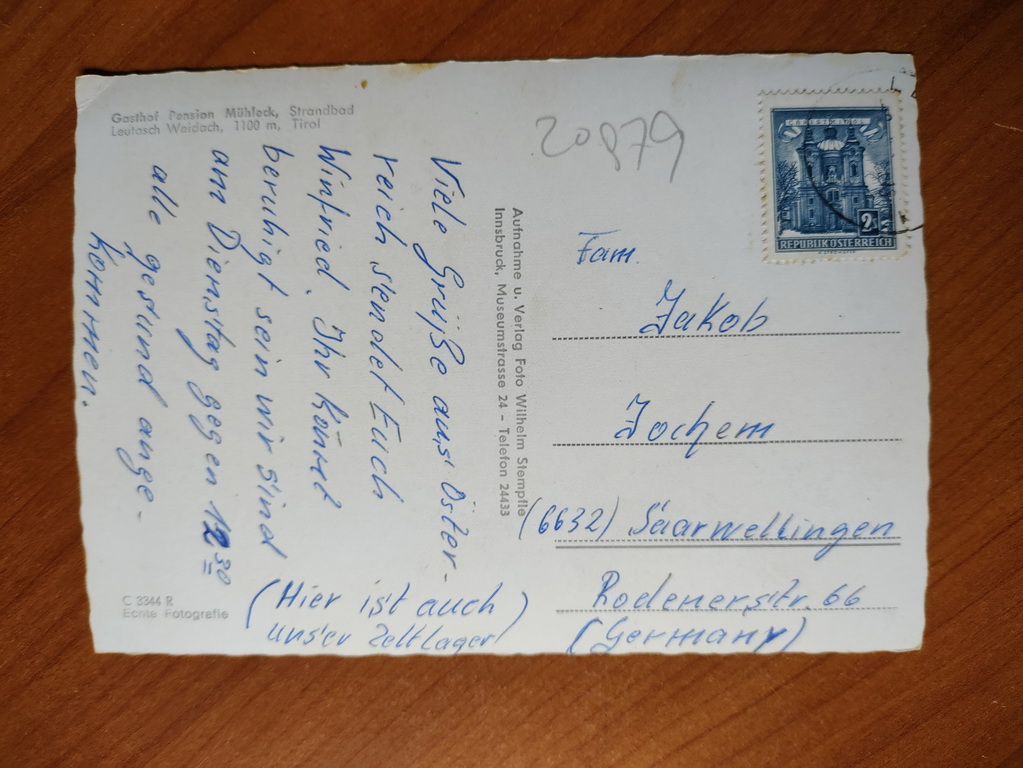 Gasthof Pension Mühleck, Strandbad
Leutasch Weidach, 1100 m, Tirol
Viele Grüße aus Öster-
reich sendet Euch
Winfried. Ihr könnt
beruhigt sein wir sind
am Dienstag gegen 12³⁰
alle gesund ange-
kommen.
(Hier ist auch)
unser Zeltlager
C 3344 R
Echte Fotografie
Aufnahme u. Verlag Foto Wilhelm Stempfle
Innsbruck, Museumstrasse 24 - Telefon 24433
20879
CHRISTKINDL
2S
REPUBLIK ÖSTERREICH
Fam.
Jakob
Jochem
(6632) Saarwellingen
Rodenerstr. 66
(Germany)